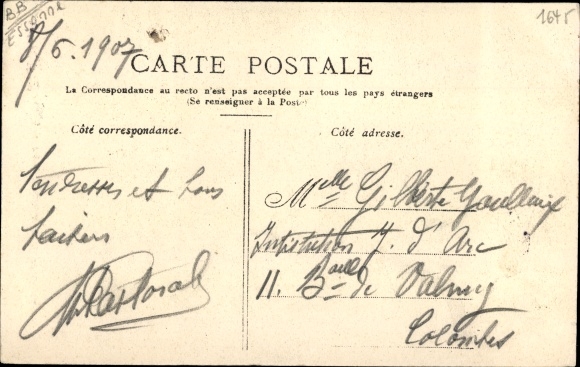 BB
Essonne
1645
8/6.1907
CARTE POSTALE
La Correspondance au recto n'est pas acceptée par tous les pays étrangers
(Se renseigner à la Poste)
Côté correspondance.
Côté adresse.
Tendresses et bons
baisers
Melle Gilberte
Institution J. d'Arc
11. Bould de Valmy
Colombes